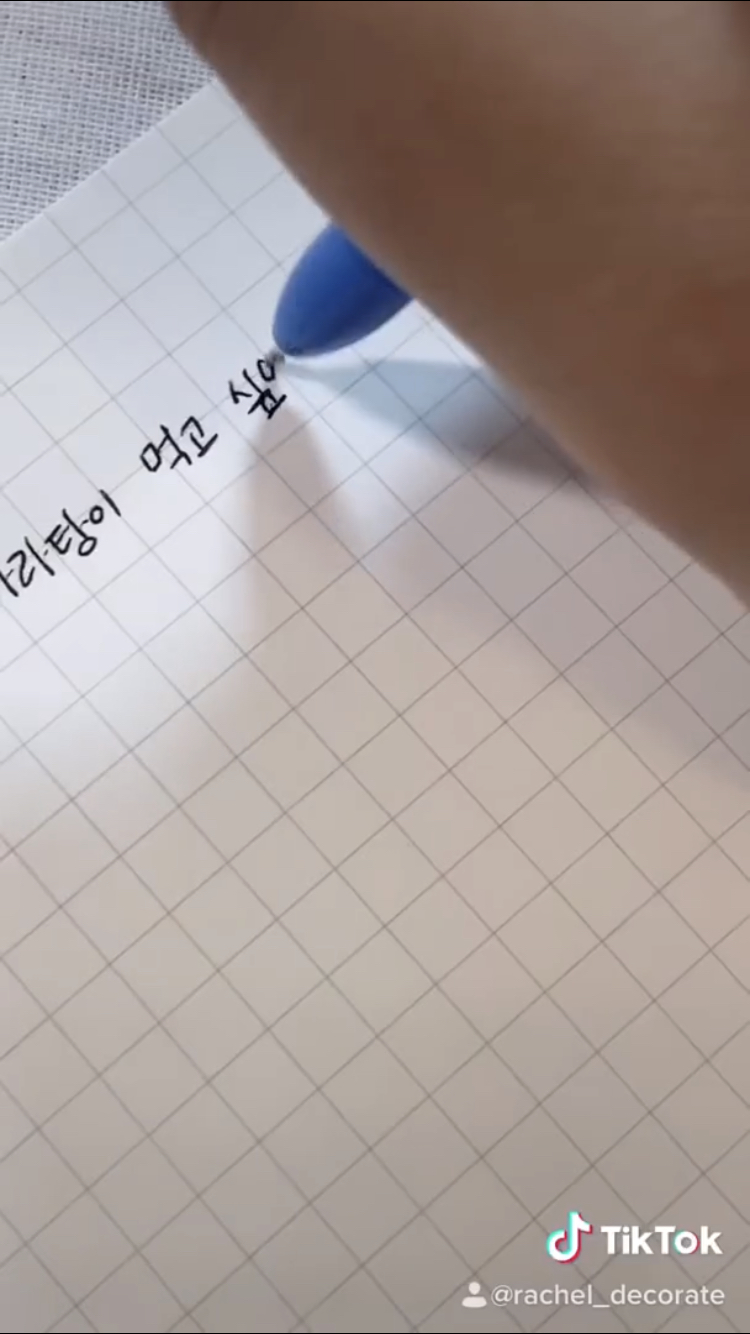 라탕이 먹고 싶ㅇ
TikTok
@rachel_decorate